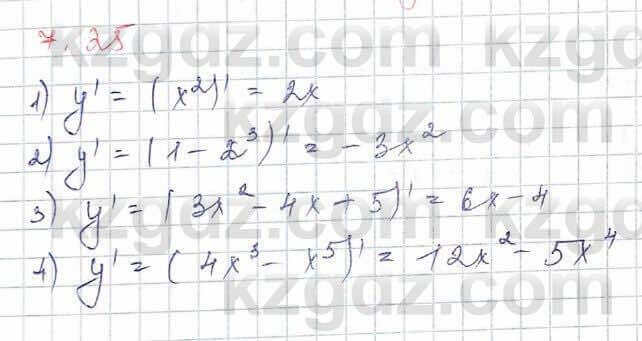 7.25
1) y' = (x²)' = 2x
2) y' = (1 - 2³)' = - 3x²
3) y' = (3x² - 4x + 5)' = 6x - 4
4) y' = (4x³ - x⁵)' = 12x² - 5x⁴
kzgdz.com
kzgdz.com
kzgdz.com
kzgdz.com